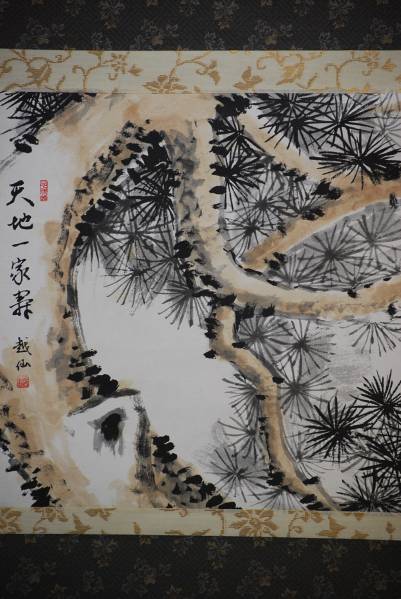 天地一家春
越仙